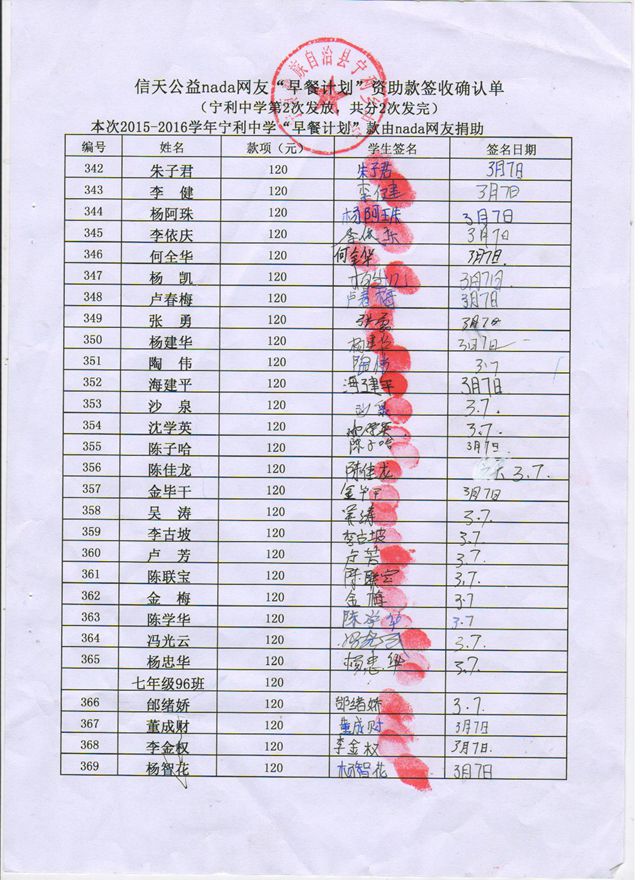 信天公益nada网友“早餐计划”资助款签收确认单
（宁利中学第2次发放，共分2次发完）
本次2015-2016学年宁利中学“早餐计划”款由nada网友捐助
编号 姓名 款项（元） 学生签名 签名日期
342 朱子君 120 朱子君 3月7日
343 李 健 120 李健 3月7日
344 杨阿珠 120 杨阿珠 3月7日
345 李依庆 120 李依庆 3月7日
346 何全华 120 何全华 3月7日.
347 杨 凯 120 3月7日.
348 卢春梅 120 卢春梅 3月7日
349 张 勇 120 张勇 3月7日
350 杨建华 120 杨建华 3月7日
351 陶 伟 120 陶伟 3.7
352 海建平 120 海建平 3月7日
353 沙 泉 120 沙泉 3.7.
354 沈学英 120 沈学英 3.7.
355 陈子哈 120 陈子哈 3月7日.
356 陈佳龙 120 陈佳龙 3.7.
357 金毕干 120 金毕干 3月7日
358 吴 涛 120 吴涛 3.7.
359 李古坡 120 李古坡 3.7
360 卢 芳 120 卢芳 3.7.
361 陈联宝 120 陈联宝 3.7.
362 金 梅 120 金梅 3.7
363 陈学华 120 陈学华 3.7
364 冯光云 120 冯光云 3.7.
365 杨忠华 120 杨忠华 3.7.
七年级96班 120
366 邰绪娇 120 邰绪娇 3.7.
367 董成财 120 董成财 3月7日
368 李金权 120 李金权 3月7日.
369 杨智花 120 杨智花 3月7日